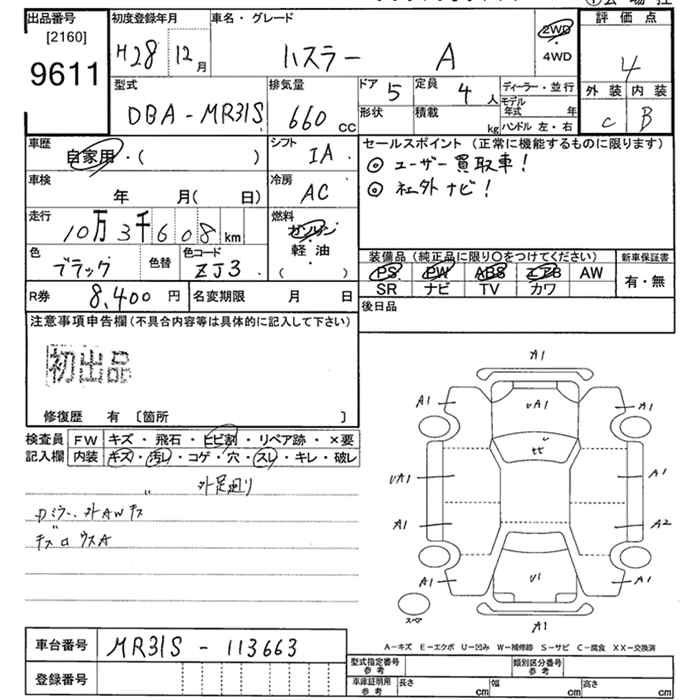 出品番号
[2160]
9611
初度登録年月
H28 12月
車名・グレード
ハスラー A
2WD
・
4WD
評価点
4
外装 内装
C B
型式
DBA-MR31S
排気量
660 cc
ドア 5
定員 4 人
形状
積載 kg
ディーラー・並行
モデル年式 年
ハンドル 左・右
車歴
自家用・( )
シフト
IA
車検
年 月( 日)
冷房
AC
走行
10万3千608 km
燃料
ガソリン
・
軽油
・
( )
色
ブラック
色替
色コード
ZJ3
R券 8,400 円
名変期限 月 日
セールスポイント(正常に機能するものに限ります)
◎ユーザー買取車!
◎社外ナビ!
装備品(純正品に限り○をつけてください)
PS PW ABS エアB AW
SR ナビ TV カワ
新車保証書
有・無
後日品
注意事項申告欄(不具合内容等は具体的に記入して下さい)
初出品
修復歴 有 〔箇所 〕
検査員
記入欄
FW キズ・飛石・ヒビ割・リペア跡・×要
内装 キズ・汚レ・コゲ・穴・スレ・キレ・破レ
A1
A1 UA1 A1
ヒビ
UA1 A1
A1 A2
A1 U1 A1
スペア
A1
A-キズ E-エクボ U-凹み W-補修跡 S-サビ C-腐食 XX-交換済
車台番号 MR31S-113663
登録番号
型式指定番号
参考
類別区分番号
参考
車庫証明用
参考
長さ cm
幅 cm
高さ cm